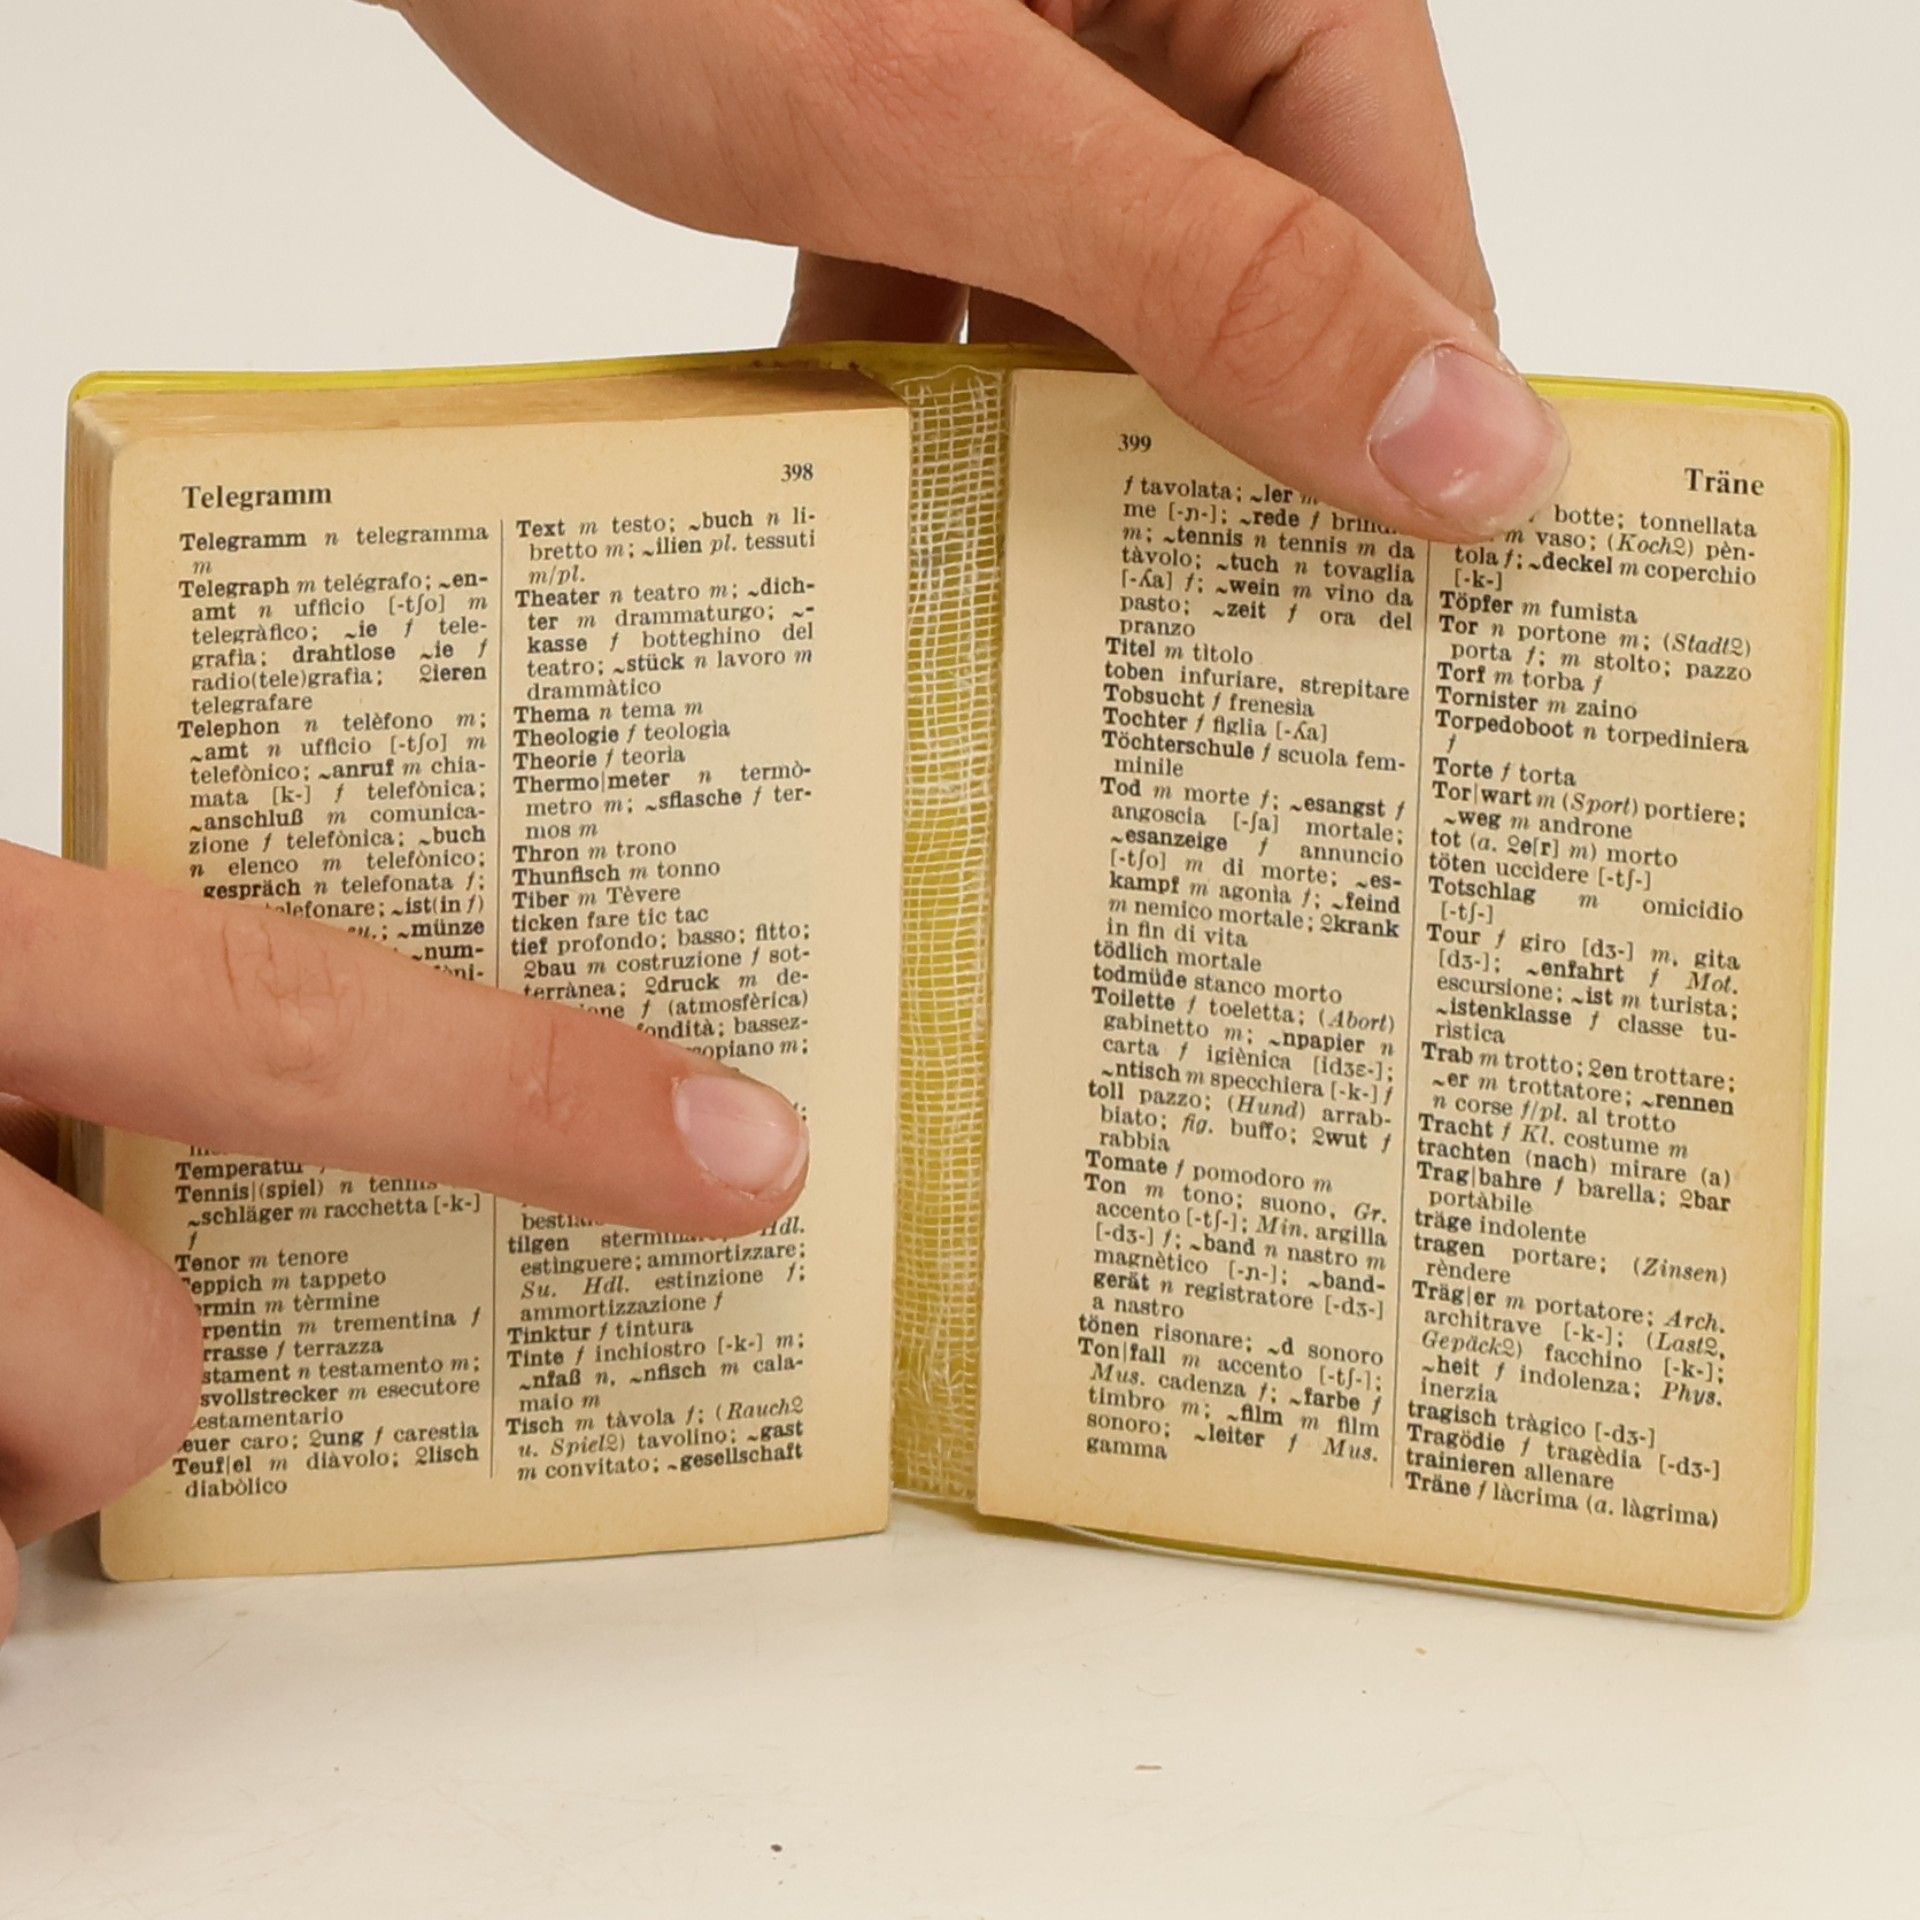 398
Telegramm
Telegramm n telegramma
m
Telegraph m telégrafo; ~en-
amt n ufficio [-tʃo] m
telegràfico; ~ie f tele-
grafia; drahtlose ~ie f
radio(tele)grafia; 2ieren
telegrafare
Telephon n telèfono m;
~amt n ufficio [-tʃo] m
telefònico; ~anruf m chia-
mata [k-] f telefònica;
~anschluß m comunica-
zione f telefònica; ~buch
n elenco m telefònico;
gespräch n telefonata f;
telefonare; ~ist(in f)
~münze
~num-
Temperatur
Tennis|(spiel) n tennis
~schläger m racchetta [-k-]
f
Tenor m tenore
Teppich m tappeto
m tèrmine
m trementina f
f terrazza
n testamento m;
m esecutore
caro; 2ung f carestia
Teuf|el m diàvolo; 2lisch
diabòlico
Text m testo; ~buch n li-
bretto m; ~ilien pl. tessuti
m/pl.
Theater n teatro m; ~dich-
ter m drammaturgo; ~-
kasse f botteghino del
teatro; ~stück n lavoro m
drammàtico
Thema n tema m
Theologie f teologìa
Theorie f teorìa
Thermo|meter n termò-
metro m; ~sflasche f ter-
mos m
Thron m trono
Thunfisch m tonno
Tiber m Tèvere
ticken fare tic tac
tief profondo; basso; fitto;
2bau m costruzione f sot-
terrànea; 2druck m de-
f (atmosfèrica)
bassez-
m;
tilgen Hdl.
estinguere; ammortizzare;
Su. Hdl. estinzione f;
ammortizzazione f
Tinktur f tintura
Tinte f inchiostro [-k-] m;
~nfaß n, ~nfisch m cala-
maio m
Tisch m tàvola f; (Rauch2
u. Spiel2) tavolino; ~gast
m convitato; ~gesellschaft
399
Träne
f tavolata; ~ler m
me [-ɲ-]; ~rede f
m; ~tennis n tennis m da
tàvolo; ~tuch n tovaglia
[-ʎa] f; ~wein m vino da
pasto; ~zeit f ora del
pranzo
Titel m tìtolo
toben infuriare, strepitare
Tobsucht f frenesìa
Tochter f figlia [-ʎa]
Töchterschule f scuola fem-
minile
Tod m morte f; ~esangst f
angoscia [-ʃa] mortale;
~esanzeige f annuncio
[-tʃo] m di morte; ~es-
kampf m agonìa f; ~feind
m nemico mortale; 2krank
in fin di vita
tödlich mortale
todmüde stanco morto
Toilette f toeletta; (Abort)
gabinetto m; ~npapier n
carta f igiènica [idʒɛ-];
~ntisch m specchiera [-k-] f
toll pazzo; (Hund) arrab-
biato; fig. buffo; 2wut f
rabbia
Tomate f pomodoro m
Ton m tono; suono, Gr.
accento [-tʃ-]; Min. argilla
[-dʒ-] f; ~band n nastro m
magnètico [-ɲ-]; ~band-
gerät n registratore [-dʒ-]
a nastro
tönen risonare; ~d sonoro
Ton|fall m accento [-tʃ-];
Mus. cadenza f; ~farbe f
timbro m; ~film m film
sonoro; ~leiter f Mus.
gamma
botte; tonnellata
m vaso; (Koch2) pèn-
tola f; ~deckel m coperchio
[-k-]
Töpfer m fumista
Tor n portone m; (Stadt2)
porta f; m stolto; pazzo
Torf m torba f
Tornister m zaino
Torpedoboot n torpediniera
f
Torte f torta
Tor|wart m (Sport) portiere;
~weg m androne
tot (a. 2e[r] m) morto
töten uccìdere [-tʃ-]
Totschlag m omicidio
[-tʃ-]
Tour f giro [dʒ-] m, gita
[dʒ-]; ~enfahrt f Mot.
escursione; ~ist m turista;
~istenklasse f classe tu-
rìstica
Trab m trotto; 2en trottare;
~er m trottatore; ~rennen
n corse f/pl. al trotto
Tracht f Kl. costume m
trachten (nach) mirare (a)
Trag|bahre f barella; 2bar
portàbile
träge indolente
tragen portare; (Zinsen)
rèndere
Träg|er m portatore; Arch.
architrave [-k-]; (Last2,
Gepäck2) facchino [-k-];
~heit f indolenza; Phys.
inerzia
tragisch tràgico [-dʒ-]
Tragödie f tragèdia [-dʒ-]
trainieren allenare
Träne f làcrima (a. làgrima)